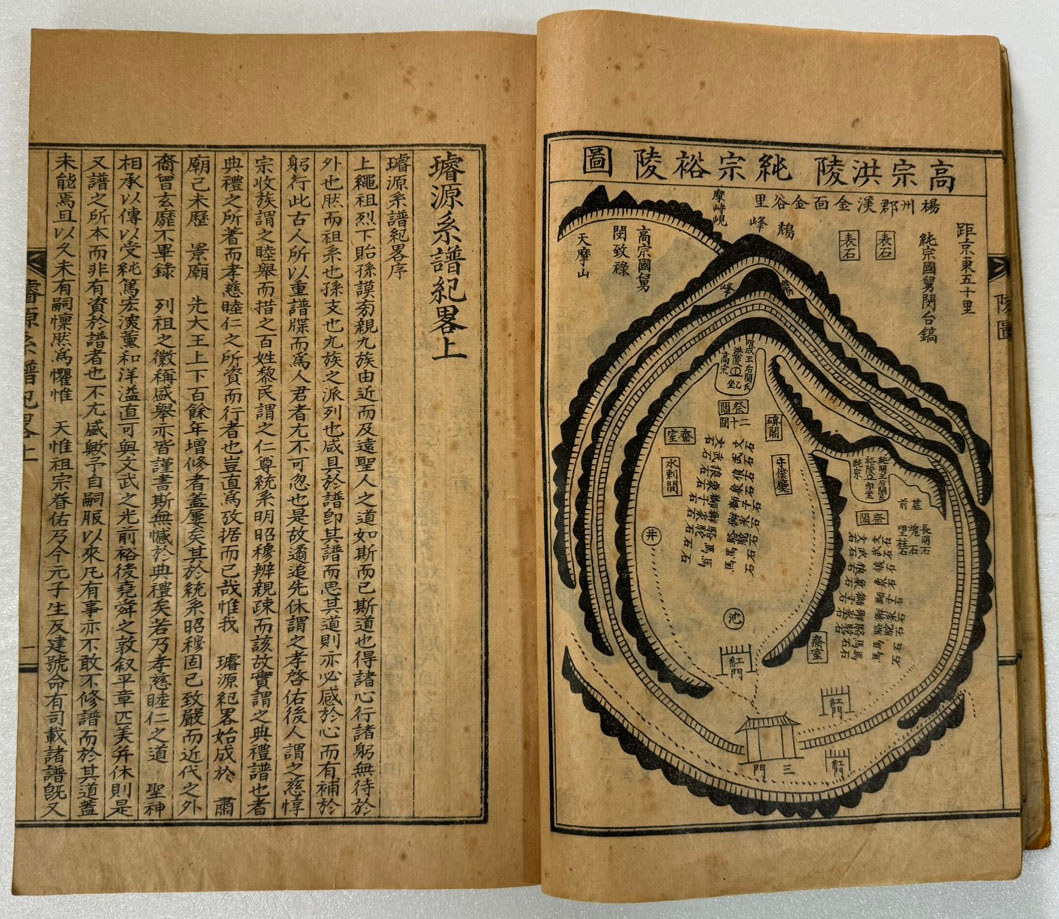 高宗洪陵 純宗裕陵圖
楊州郡渼金面金谷里
距京東五十里
純宗國舅閔台鎬
表石
表石
鵚峰
摩峙峴
高宗國舅
閔致祿
天摩山
高宗
洪陵
祭閣
碑閣
齋室
水剌間
守僕廳
井
祭閣
齋室
紅門
紅門
紅門
三門
陵圖
璿源系譜紀畧上
璿源系譜紀畧序
上繩祖烈下貽孫謨敦親九族由近而及遠聖人之道如斯而已斯道也得諸心行諸躬無待於
外也然而祖系也孫支也九族之派列也咸具於譜卽其譜而思其道則亦必感於心而有補於
躬行此古人所以重譜牒而爲人君者尤不可忽也是故遹追先休謂之孝啓佑後人謂之慈惇
宗收族謂之睦舉而措之百姓黎民謂之仁尊統系明昭穆辨親疎而該故實謂之典禮譜也者
典禮之所著而孝慈睦仁之所資而行者也豈直爲攷据而已哉惟我 璿源紀畧始成於 肅
廟己未歷 景廟 先大王上下百餘年增修者蓋屢矣其於統系昭穆固已致嚴而近代之外
裔曾玄靡不畢錄 列祖之徽稱盛舉亦皆謹書斯無憾於典禮矣若乃孝慈睦仁之道 聖神
相承以傳以受純篤宏濊薰和洋溢直可與文武之光前裕後堯舜之敦叙平章匹美幷休則是
又譜之所本而非有資於譜者也不尤盛歟予自嗣服以來凡有事亦不敢不修譜而於其道蓋
未能焉且以久未有嗣懍然爲懼惟 天惟祖宗眷佑乃今元子生及建號命有司載諸譜旣又
璿源系譜紀畧上